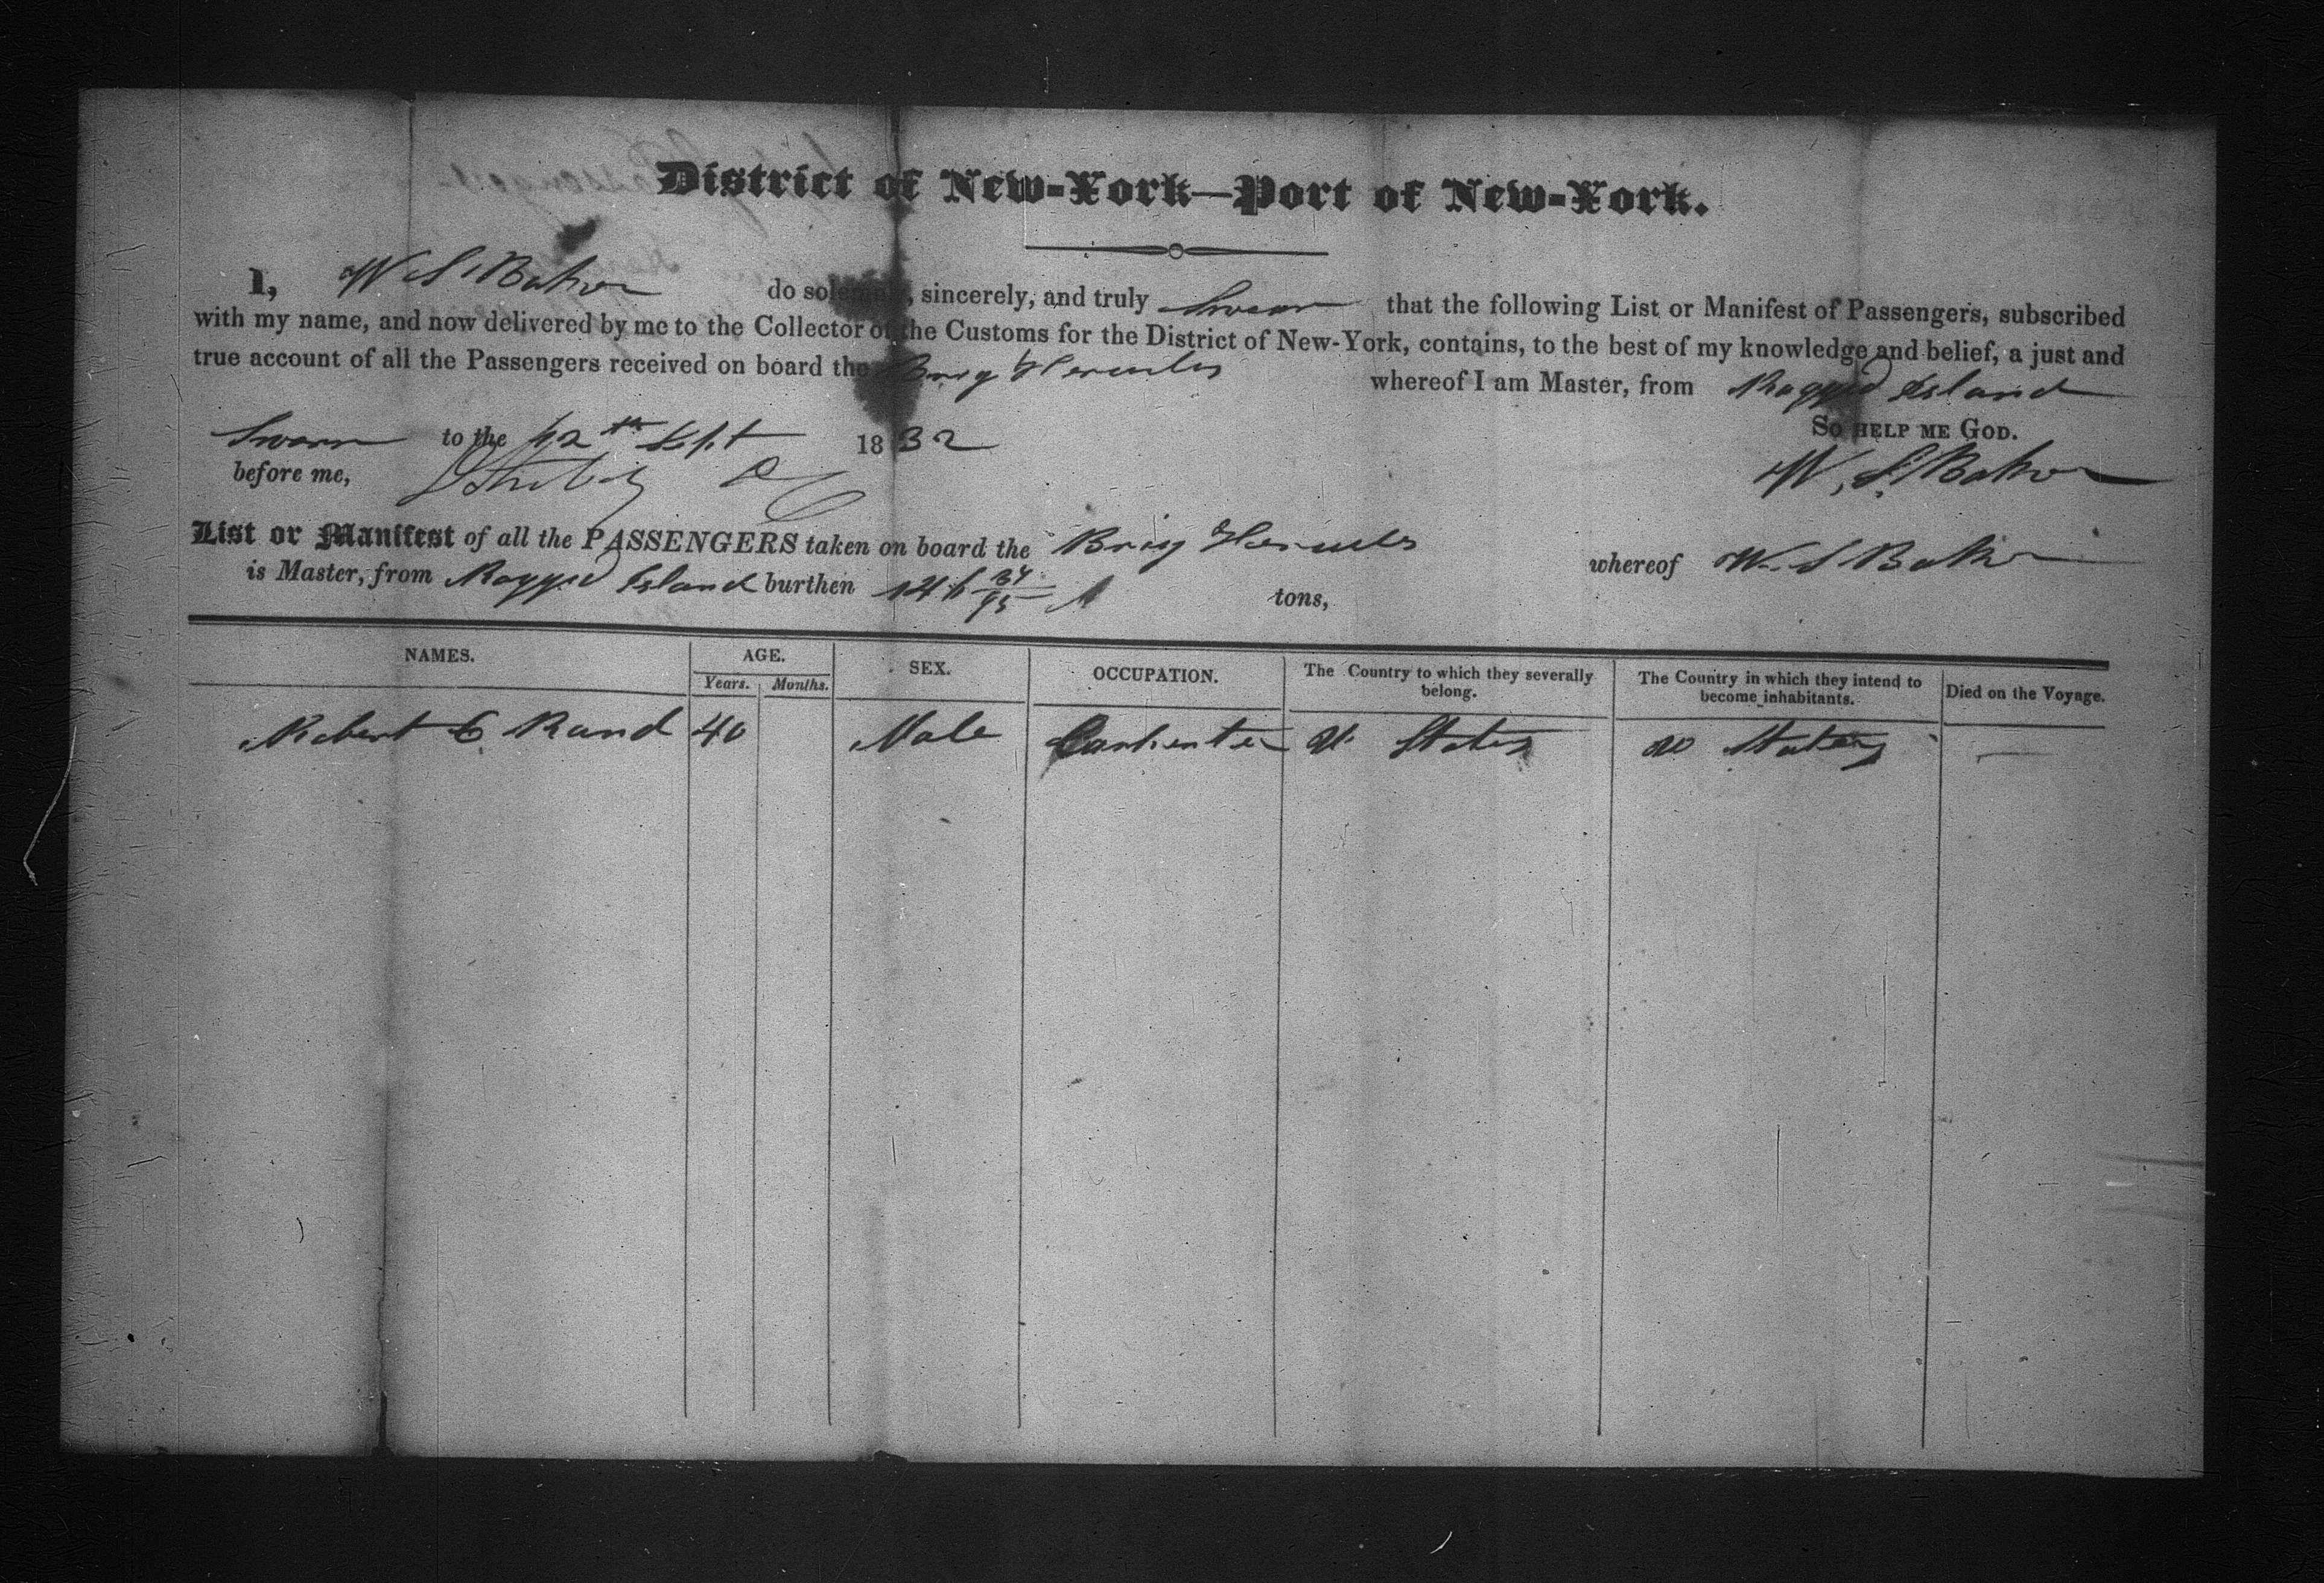 District of New-York—Port of New-York.
I, W S Baker do solemnly, sincerely, and truly Swear that the following List or Manifest of Passengers, subscribed
with my name, and now delivered by me to the Collector of the Customs for the District of New-York, contains, to the best of my knowledge and belief, a just and
true account of all the Passengers received on board the Brig Hercules whereof I am Master, from Ragged Island
So help me God.
Sworn to the 12th Sept 1832
before me,
W. S. Baker
List or Manifest of all the PASSENGERS taken on board the Brig Hercules whereof W. S Baker
is Master, from Ragged Island burthen 146 34/95 tons,
NAMES. AGE. SEX. OCCUPATION. The Country to which they severally belong. The Country in which they intend to become inhabitants. Died on the Voyage.
Years. Months.
Robert C Rand 40 Male Carpenter U States U States —